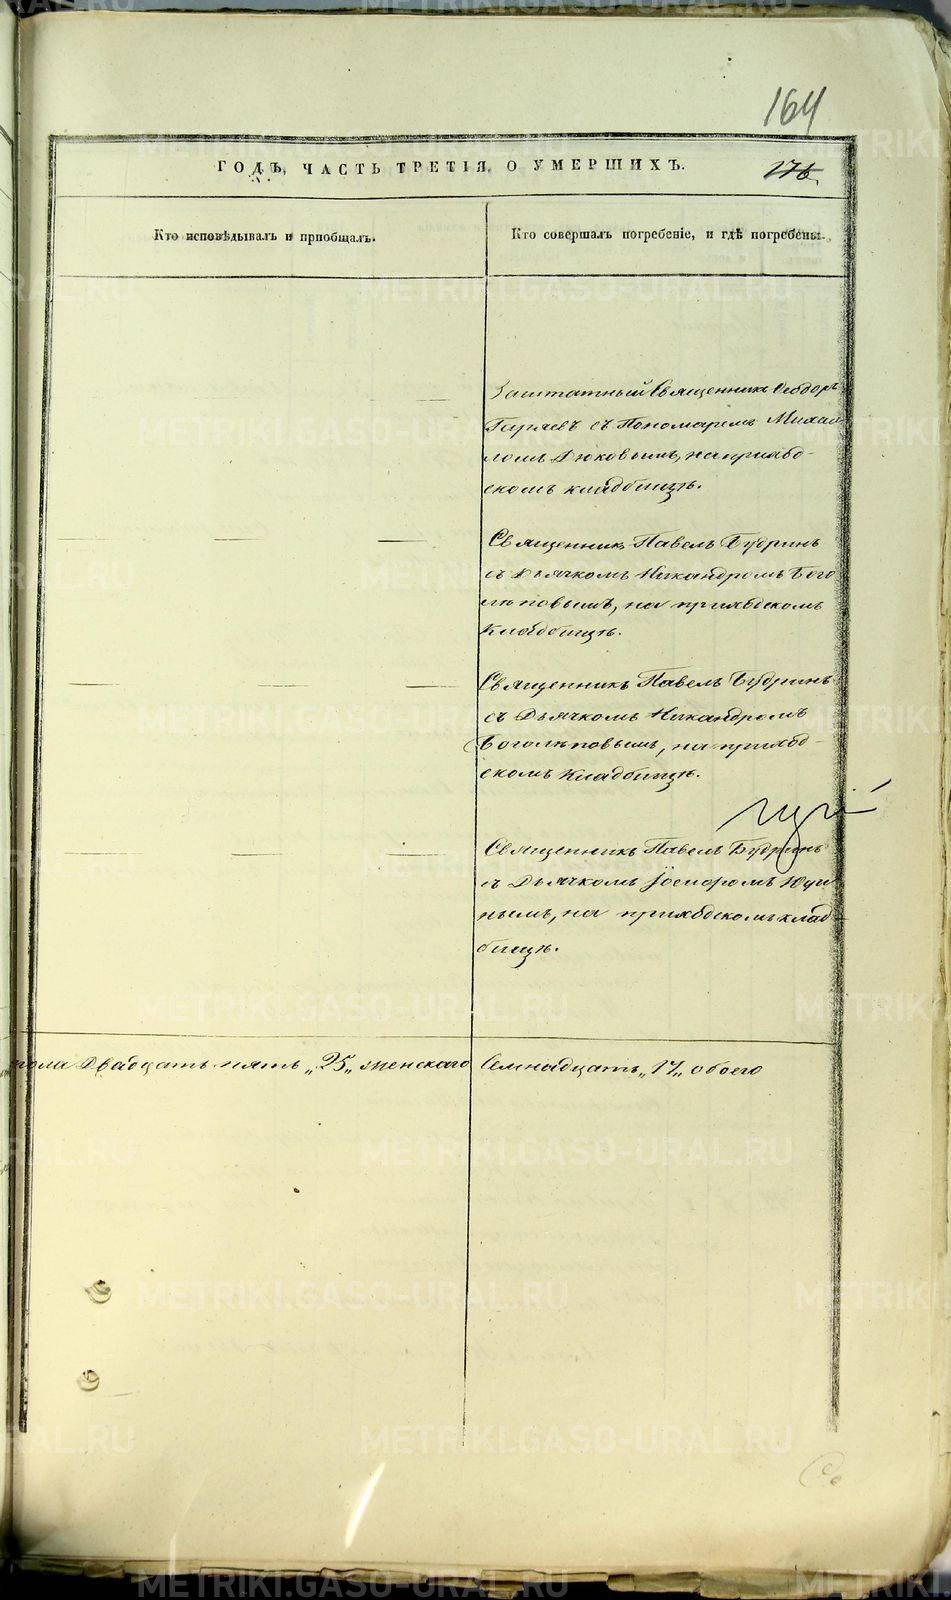 164
ГОДЪ, ЧАСТЬ ТРЕТІЯ, О УМЕРШИХЪ.
176.
Кто исповѣдывалъ и пріобщалъ.
Кто совершалъ погребеніе, и гдѣ погребены.
Заштатный Священникъ Ѳеодоръ
Гиряевъ съ Пономаремъ Михаи
ломъ Дюковымъ, на приход-
скомъ кладбищѣ.
Священникъ Павелъ Будринъ
съ Дьячкомъ Никандромъ Бого
лѣповымъ, на приходскомъ
Кладбищѣ.
Священникъ Павелъ Будринъ
съ Дьячкомъ Никандромъ
Боголѣповымъ, на приход-
скомъ Кладбищѣ.
Священникъ Павелъ Будринъ
съ Дьячкомъ
нымъ, на приходскомъ клад-
бищѣ.
пола Двадцать пять „25„ женскаго Семнадцать „17„ обоего
METRIKI.GASO-URAL.RU